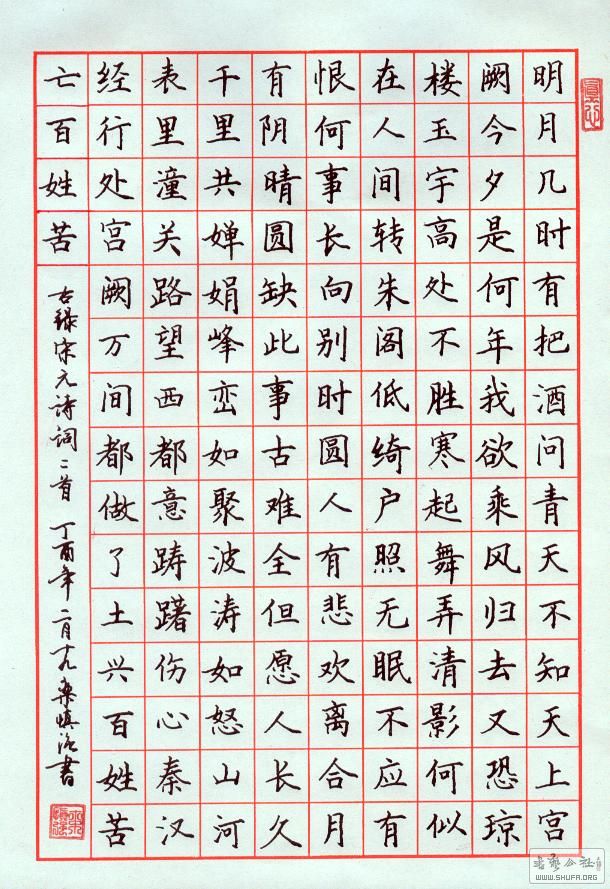 明月几时有把酒问青天不知天上宫
阙今夕是何年我欲乘风归去又恐琼
楼玉宇高处不胜寒起舞弄清影何似
在人间转朱阁低绮户照无眠不应有
恨何事长向别时圆人有悲欢离合月
有阴晴圆缺此事古难全但愿人长久
千里共婵娟峰峦如聚波涛如怒山河
表里潼关路望西都意踌躇伤心秦汉
经行处宫阙万间都做了土兴百姓苦
亡百姓苦
右録宋元诗词二首 丁酉年二月十九 桑慎书
WWW.SHUFA.ORG